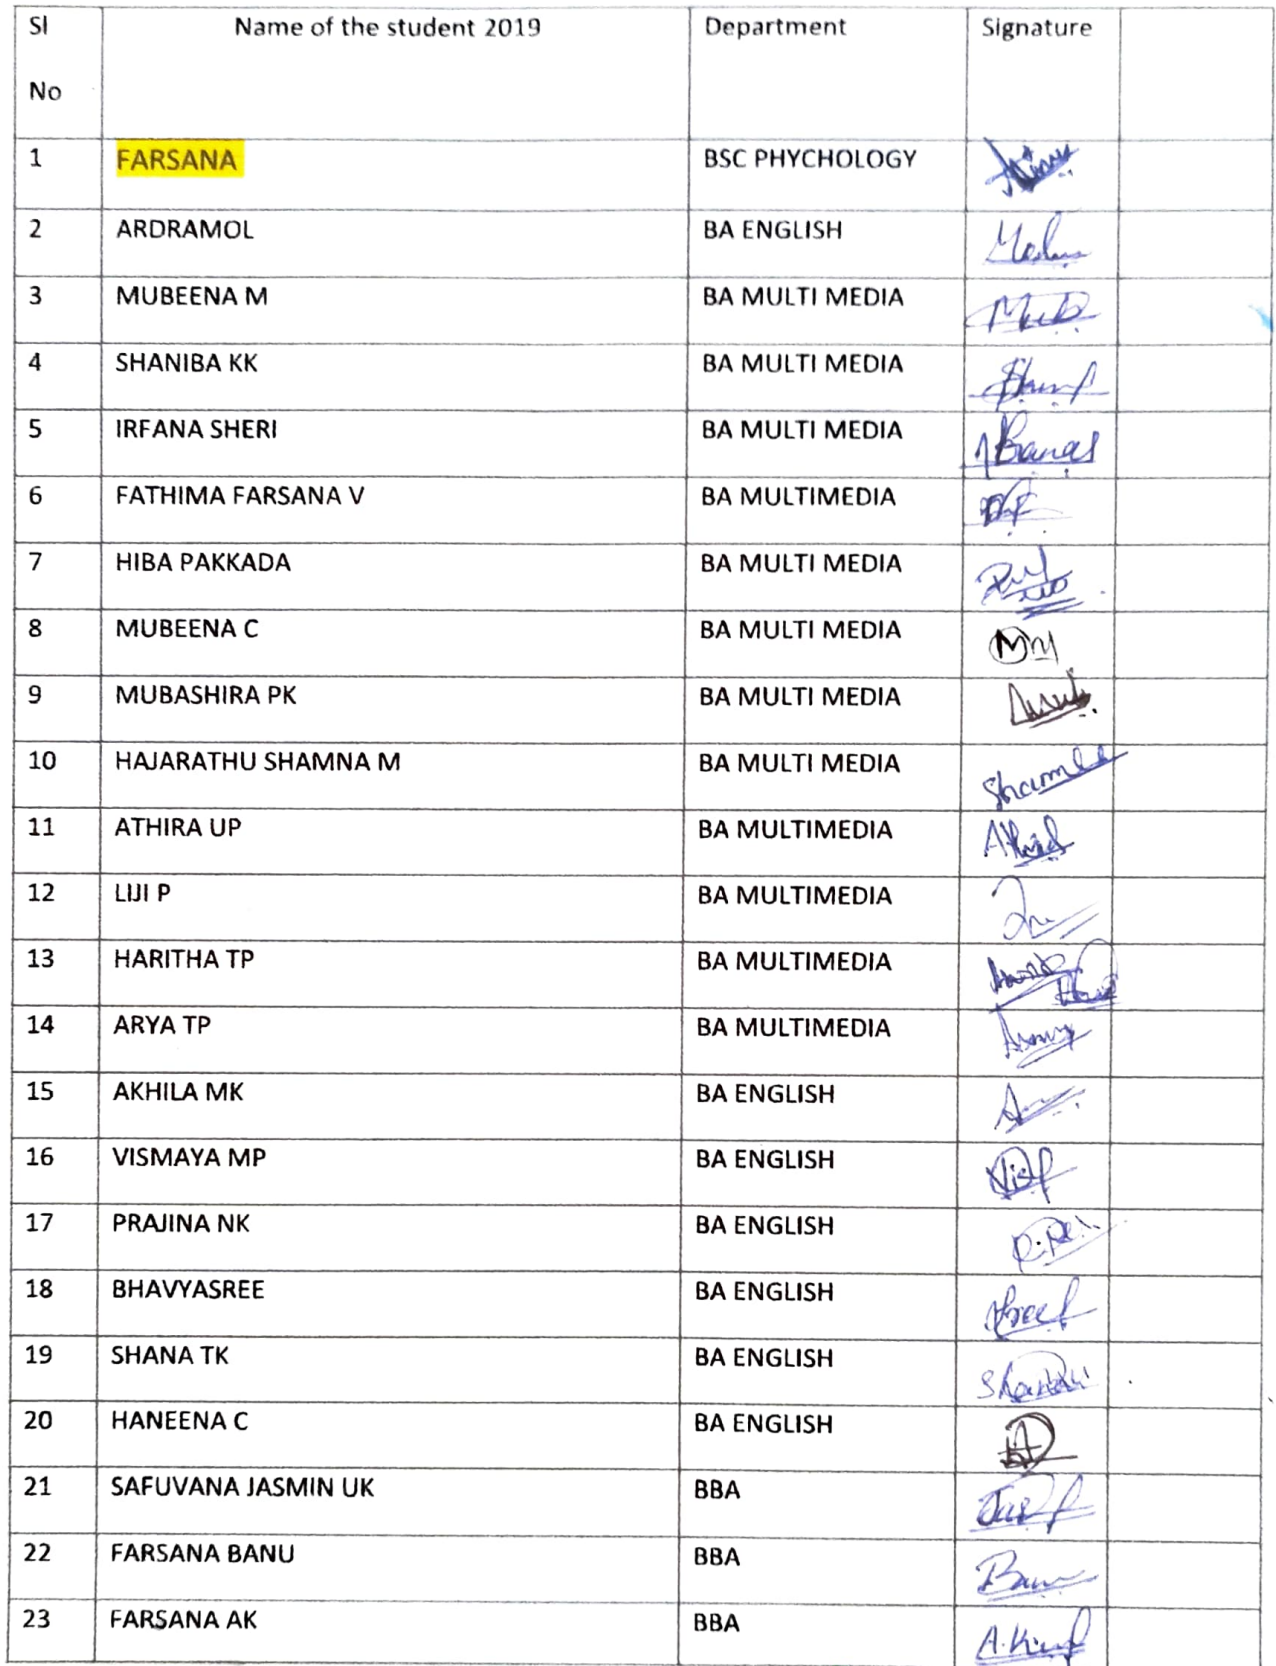 Sl No Name of the student 2019 Department Signature
1 FARSANA BSC PHYCHOLOGY
2 ARDRAMOL BA ENGLISH
3 MUBEENA M BA MULTI MEDIA
4 SHANIBA KK BA MULTI MEDIA
5 IRFANA SHERI BA MULTI MEDIA
6 FATHIMA FARSANA V BA MULTIMEDIA
7 HIBA PAKKADA BA MULTI MEDIA
8 MUBEENA C BA MULTI MEDIA
9 MUBASHIRA PK BA MULTI MEDIA
10 HAJARATHU SHAMNA M BA MULTI MEDIA
11 ATHIRA UP BA MULTIMEDIA
12 LIJI P BA MULTIMEDIA
13 HARITHA TP BA MULTIMEDIA
14 ARYA TP BA MULTIMEDIA
15 AKHILA MK BA ENGLISH
16 VISMAYA MP BA ENGLISH
17 PRAJINA NK BA ENGLISH
18 BHAVYASREE BA ENGLISH
19 SHANA TK BA ENGLISH
20 HANEENA C BA ENGLISH
21 SAFUVANA JASMIN UK BBA
22 FARSANA BANU BBA
23 FARSANA AK BBA